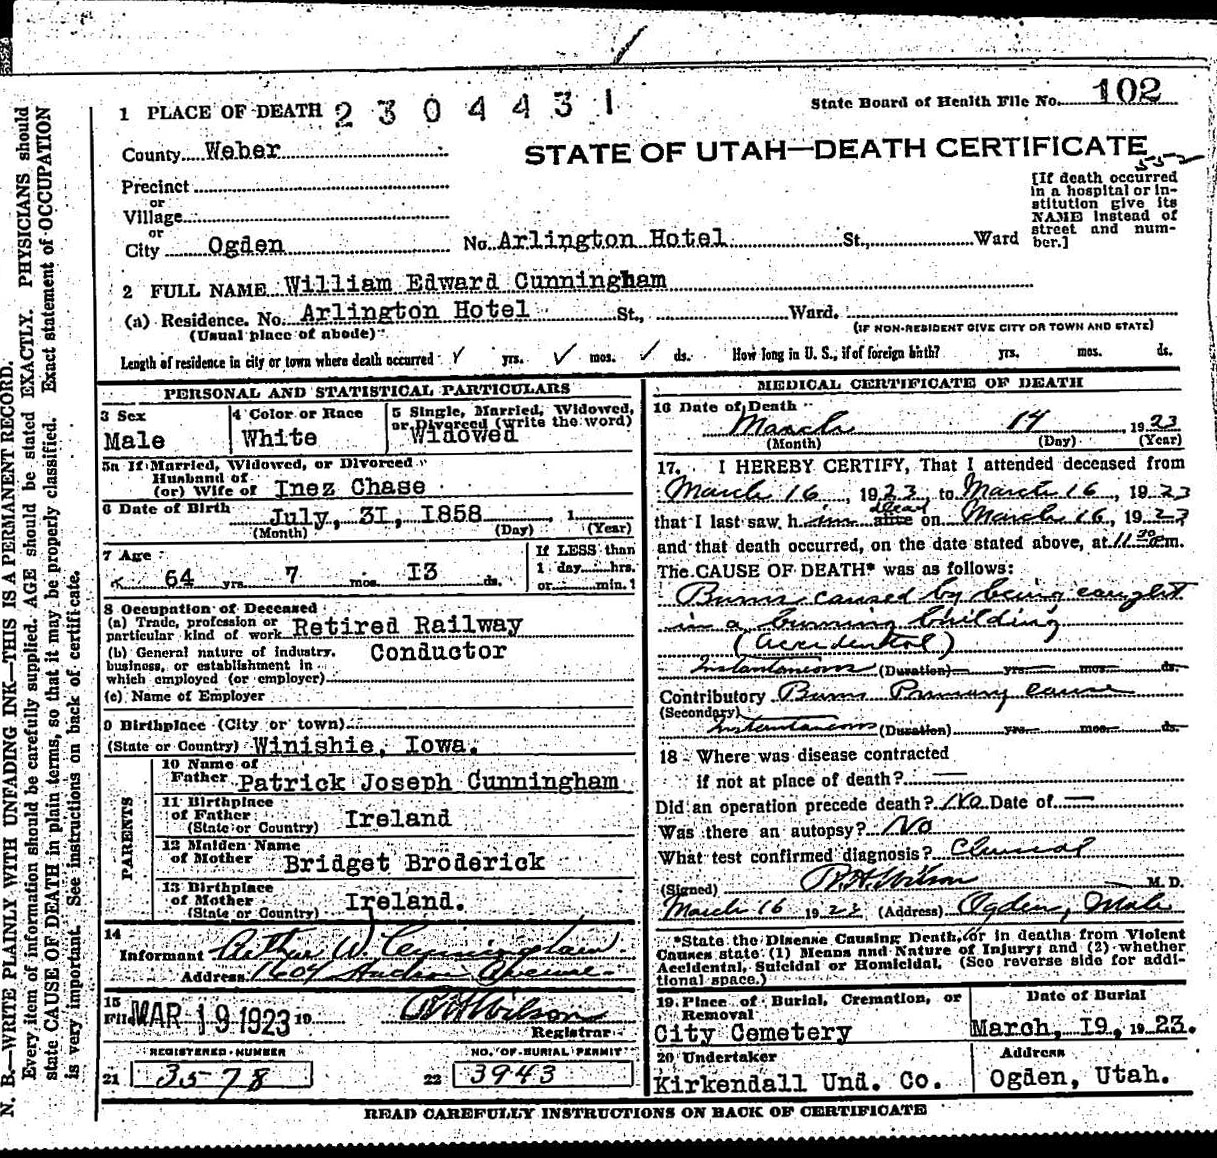 1 PLACE OF DEATH 2304431
State Board of Health File No. 102
County Weber
STATE OF UTAH—DEATH CERTIFICATE
552
Precinct
or
Village
or
City Ogden No. Arlington Hotel St., Ward
[If death occurred
in a hospital or in-
stitution give its
NAME instead of
street and num-
ber.]
2 FULL NAME William Edward Cunningham
(a) Residence. No. Arlington Hotel St., Ward.
(Usual place of abode)
(IF NON-RESIDENT GIVE CITY OR TOWN AND STATE)
Length of residence in city or town where death occurred ✓ yrs. ✓ mos. ✓ ds. How long in U. S., if of foreign birth? yrs. mos. ds.
PERSONAL AND STATISTICAL PARTICULARS
3 Sex
Male
4 Color or Race
White
5 Single, Married, Widowed,
or Divorced (write the word)
Widowed
5a If Married, Widowed, or Divorced
Husband of
(or) Wife of Inez Chase
6 Date of Birth July, 31, 1858 , 1
(Month) (Day) (Year)
7 Age
64 yrs. 7 mos. 13 ds.
If LESS than
1 day hrs.
or min.?
8 Occupation of Deceased
(a) Trade, profession or
particular kind of work Retired Railway
(b) General nature of industry, Conductor
business, or establishment in
which employed (or employer)
(c) Name of Employer
9 Birthplace (City or town)
(State or Country) Winishie, Iowa.
PARENTS
10 Name of
Father Patrick Joseph Cunningham
11 Birthplace
of Father Ireland
(State or Country)
12 Maiden Name
of Mother Bridget Broderick
13 Birthplace
of Mother Ireland.
(State or Country)
14
Informant Arthur W Cunningham
Address 1604 Hudson Avenue
15
Filed MAR 19 1923 19
R H Wilson
Registrar
REGISTERED NUMBER
21 3578
NO. OF BURIAL PERMIT
22 3943
MEDICAL CERTIFICATE OF DEATH
16 Date of Death
March 14, 1923
(Month) (Day) (Year)
17. I HEREBY CERTIFY, That I attended deceased from
March 16, 1923, to March 16, 1923
that I last saw him alive dead on March 16, 1923
and that death occurred, on the date stated above, at 11 30 a m.
The CAUSE OF DEATH* was as follows:
Burns caused by being caught
in a burning building
(Accidental)
Instantaneous (Duration) yrs. mos. ds.
Contributory Burns Primary cause
(Secondary)
Instantaneous (Duration) yrs. mos. ds.
18 Where was disease contracted
if not at place of death? —
Did an operation precede death? No Date of —
Was there an autopsy? No
What test confirmed diagnosis? Clinical
(Signed) R H Wilson M. D.
March 16 1923 (Address) Ogden, Utah
*State the Disease Causing Death, or in deaths from Violent
Causes state (1) Means and Nature of Injury; and (2) whether
Accidental, Suicidal or Homicidal. (See reverse side for addi-
tional space.)
19 Place of Burial, Cremation, or
Removal
City Cemetery
Date of Burial
March, 19, 1923.
20 Undertaker
Kirkendall Und. Co.
Address
Ogden, Utah.
READ CAREFULLY INSTRUCTIONS ON BACK OF CERTIFICATE
N. B.—WRITE PLAINLY WITH UNFADING INK—THIS IS A PERMANENT RECORD.
Every item of information should be carefully supplied. AGE should be stated EXACTLY. PHYSICIANS should
state CAUSE OF DEATH in plain terms, so that it may be properly classified. Exact statement of OCCUPATION
is very important. See instructions on back of certificate.